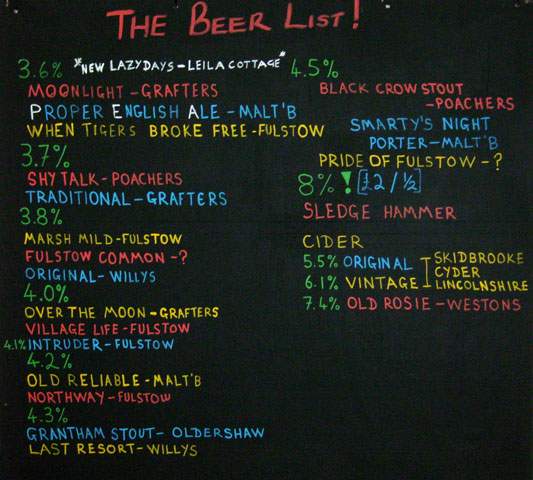 THE BEER LIST!
3.6% *NEW LAZY DAYS - LEILA COTTAGE*
MOONLIGHT - GRAFTERS
PROPER ENGLISH ALE - MALT'B
WHEN TIGERS BROKE FREE - FULSTOW
3.7%
SHY TALK - POACHERS
TRADITIONAL - GRAFTERS
3.8%
MARSH MILD - FULSTOW
FULSTOW COMMON - ?
ORIGINAL - WILLYS
4.0%
OVER THE MOON - GRAFTERS
VILLAGE LIFE - FULSTOW
4.1% INTRUDER - FULSTOW
4.2%
OLD RELIABLE - MALT'B
NORTHWAY - FULSTOW
4.3%
GRANTHAM STOUT - OLDERSHAW
LAST RESORT - WILLYS
4.5%
BLACK CROW STOUT
- POACHERS
SMARTY'S NIGHT
PORTER - MALT'B
PRIDE OF FULSTOW - ?
8% ! [£2 / ½]
SLEDGE HAMMER
CIDER
5.5% ORIGINAL
6.1% VINTAGE
SKIDBROOKE
CYDER
LINCOLNSHIRE
7.4% OLD ROSIE - WESTONS